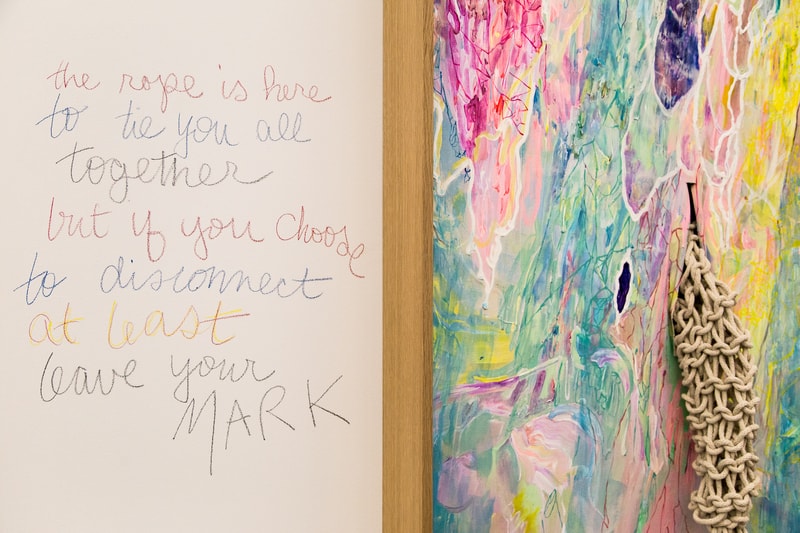 the rope is here
to tie you all
together
but if you choose
to disconnect
at least
leave your
MARK